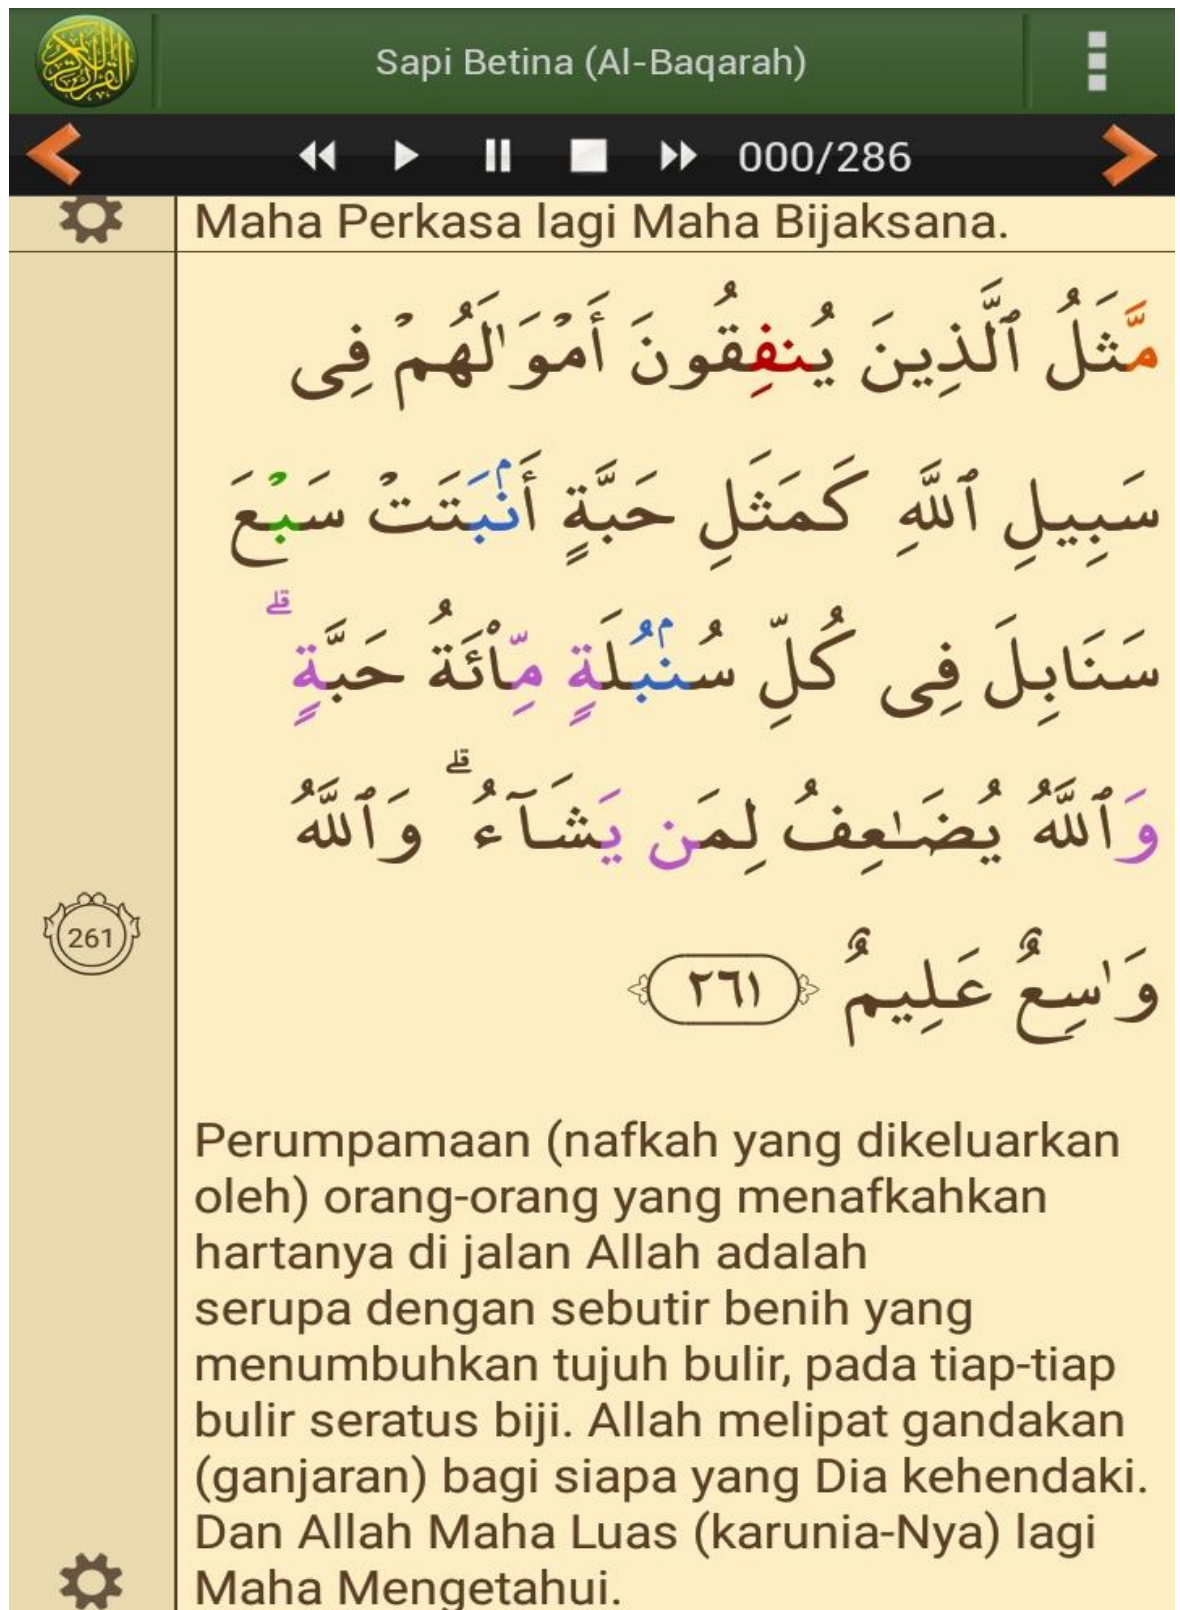 Sapi Betina (Al-Baqarah)
000/286
Maha Perkasa lagi Maha Bijaksana.
مَّثَلُ ٱلَّذِينَ يُنفِقُونَ أَمْوَٰلَهُمْ فِى
سَبِيلِ ٱللَّهِ كَمَثَلِ حَبَّةٍ أَنۢبَتَتْ سَبْعَ
سَنَابِلَ فِى كُلِّ سُنۢبُلَةٍ مِّا۟ئَةُ حَبَّةٍ ۗ
وَٱللَّهُ يُضَٰعِفُ لِمَن يَشَآءُ ۗ وَٱللَّهُ
261
وَٰسِعٌ عَلِيمٌ ٢٦١
Perumpamaan (nafkah yang dikeluarkan
oleh) orang-orang yang menafkahkan
hartanya di jalan Allah adalah
serupa dengan sebutir benih yang
menumbuhkan tujuh bulir, pada tiap-tiap
bulir seratus biji. Allah melipat gandakan
(ganjaran) bagi siapa yang Dia kehendaki.
Dan Allah Maha Luas (karunia-Nya) lagi
Maha Mengetahui.